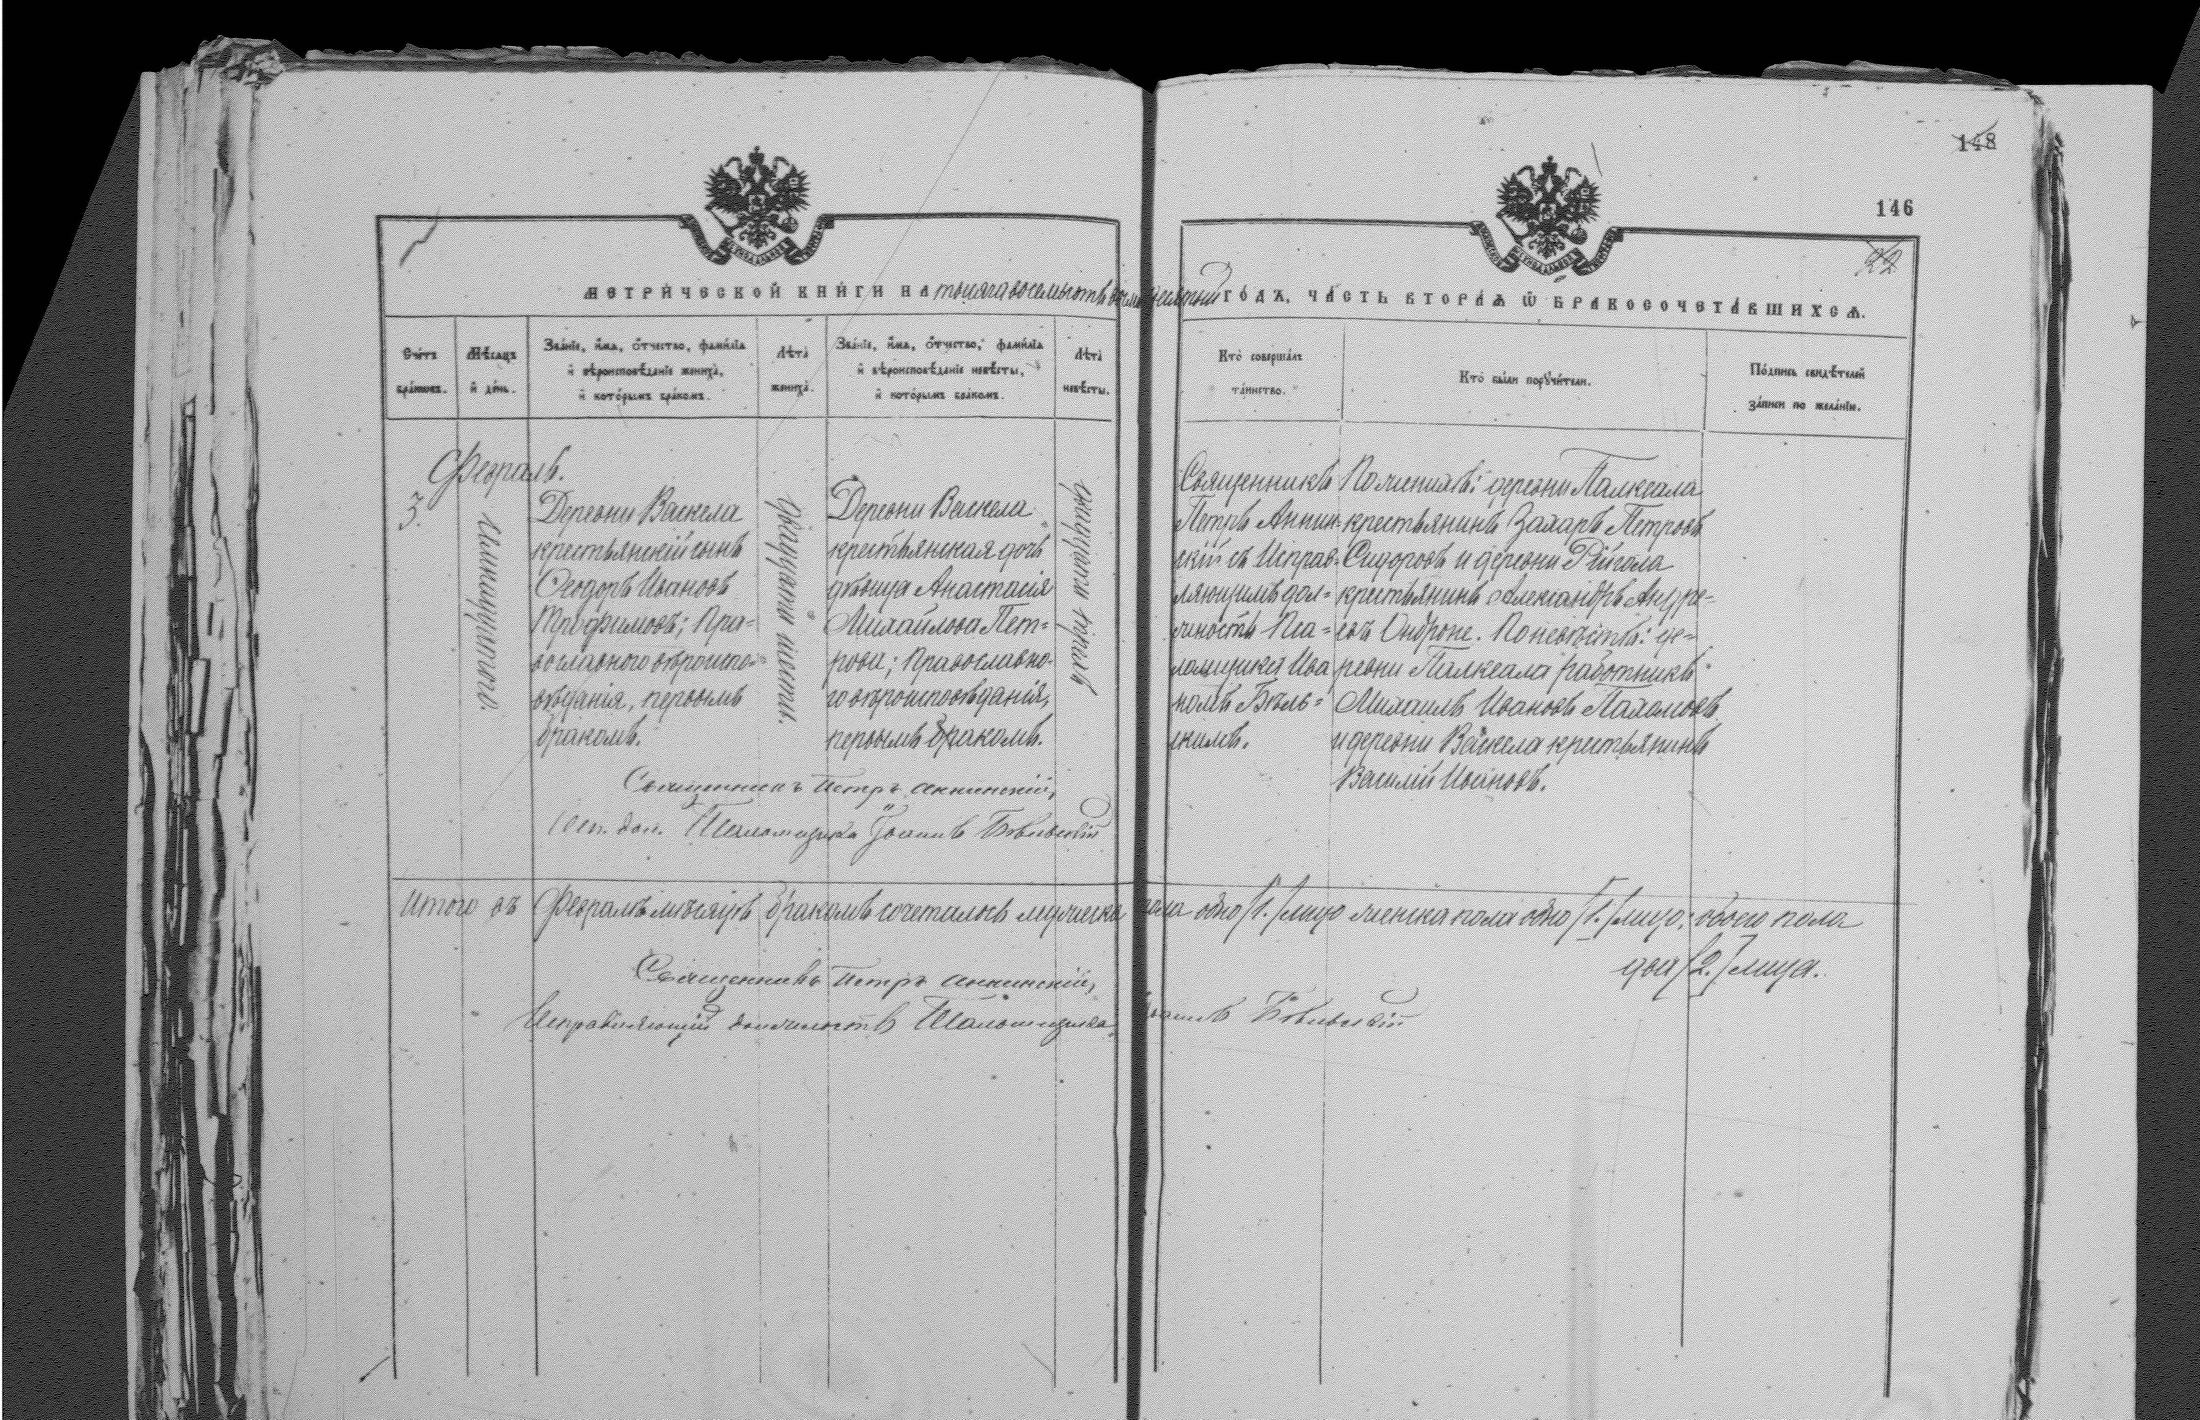 148
146
22
МЕТРИ́ЧЕСКОЙ КНИ́ГИ НА тысяча восемьсотъ восьмидесятый ГО́ДЪ, ЧА́СТЬ ВТОРА́Ѧ Ѡ БРАКОСОЧЕТА́ВШИХСѦ.
Сче́тъ бра́ковъ.
Мѣ́сяцъ и́ де́нь.
Зва́нїе, и́мѧ, о́тчество, фами́лїѧ
и́ вѣроисповѣ́данїе жениха̀,
и́ кото́рымъ бра́комъ.
Лѣта̀
жениха̀.
Зва́нїе, и́мѧ, о́тчество, фами́лїѧ
и́ вѣроисповѣ́данїе невѣ́сты,
и́ кото́рымъ бра́комъ.
Лѣта̀
невѣ́сты.
Кто̀ соверша́лъ
та́инство.
Кто̀ бы́ли поручи́тели.
По́дпись свидѣ́телей
за́писи по жела́нїю.
Февраль.
3.
одинадцатого.
Деревни Вяскела
крестьянскій сынъ
Ѳеодоръ Ивановъ
Трифимовъ; Пра=
вославного вѣроиспо=
вѣданія, первымъ
бракомъ.
двадцати шести.
Деревни Вяскела
крестьянская дочь
дѣвица Анастасія
Михайлова Пет=
рова; Православно-
го вѣроисповѣданія,
первымъ бракомъ.
двадцати трехъ
Священникъ
Петръ Аннин-
скій съ Исправ-
ляющимъ дол=
жность Пса=
ломщика Ива
номъ Бѣль=
скимъ.
По женихѣ: деревни Палкеала
крестьянинъ Захаръ Петровъ
Сидоровъ и деревни Рійгола
крестьянинъ Александръ Андре=
евъ Ондроне. По невѣстѣ: де=
ревни Палкеала работникъ
Михаилъ Ивановъ Пахомовъ
и деревни Вяскела крестьянинъ
Василій Ивановъ.
Священникъ Петръ Аннинскій,
Исп. дол. Псаломщика Іоаннъ Бѣльскій
Итого въ Февралѣ мѣсяцѣ бракомъ сочеталось мужеска пола одно /1./ лицо женска пола одно /1./ лицо; обоего пола
два /2./ лица.
Священникъ Петръ Аннинскій,
Исправляющій должность Псаломщика Іоаннъ Бѣльскій